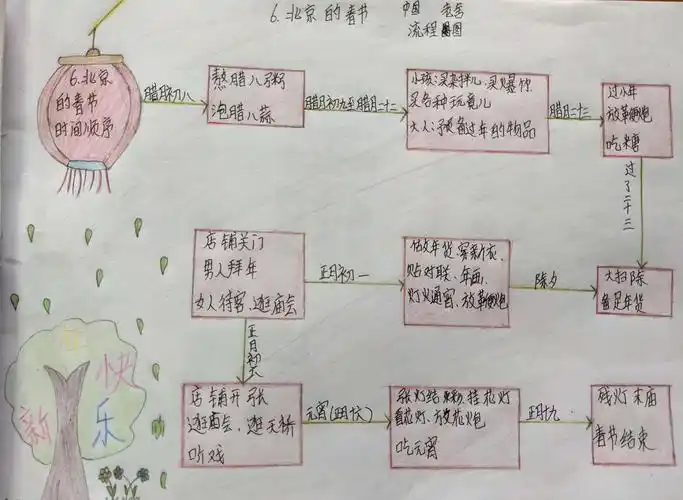 6.北京的春节
中国 老舍
流程图
6.北京
的春节
时间顺序
腊月初八
熬腊八粥
泡腊八蒜
腊月初九至腊月二十二
小孩:买杂拌儿、买爆竹
买各种玩意儿
大人:预备过年的物品
腊月二十三
过小年
放鞭炮
吃糖
过了二十三
大扫除
备足年货
除夕
做年货、穿新衣、
贴对联、年画、
灯火通宵、放鞭炮
正月初一
店铺关门
男人拜年
女人待客、逛庙会
正月初六
店铺开张
逛庙会、逛天桥
听戏
元宵(正月十五)
张灯结彩、挂花灯
看花灯、放花炮
吃元宵
正月十九
残灯末庙
春节结束
新
快
乐